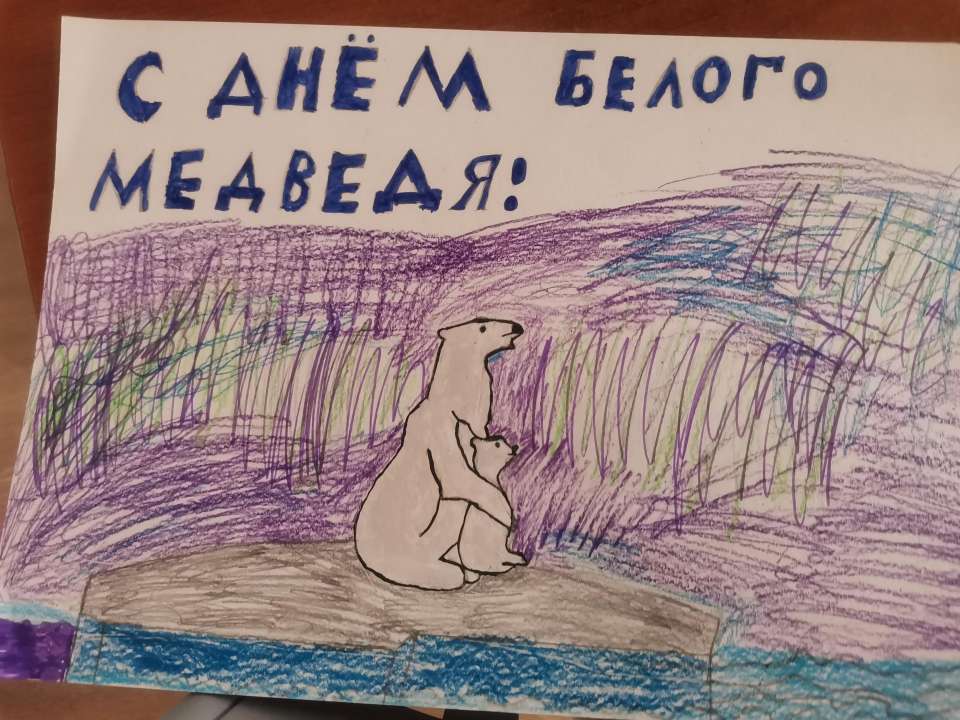 С ДНЁМ БЕЛОГО
МЕДВЕДЯ!